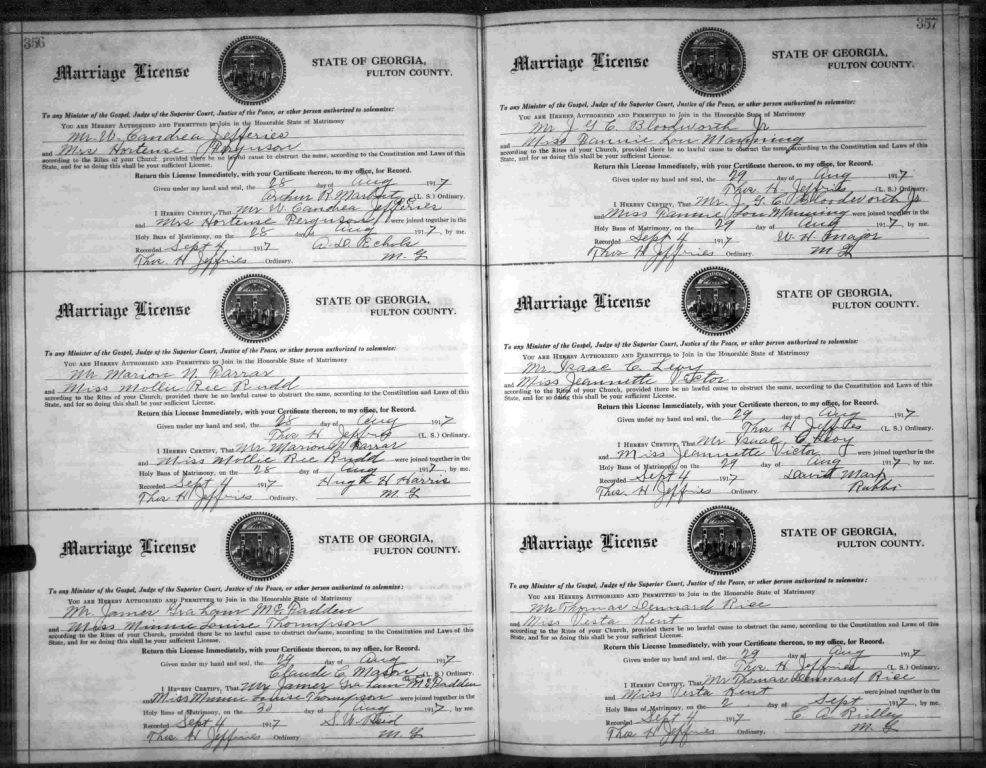 356
Marriage License
STATE OF GEORGIA,
FULTON COUNTY.
To any Minister of the Gospel, Judge of the Superior Court, Justice of the Peace, or other person authorized to solemnize:
YOU ARE HEREBY AUTHORIZED AND PERMITTED to Join in the Honorable State of Matrimony
Mr W. Candrea Jefferies
and Mrs Hortense Ferguson
according to the Rites of your Church, provided there be no lawful cause to obstruct the same, according to the Constitution and Laws of this
State, and for so doing this shall be your sufficient License.
Return this License Immediately, with your Certificate thereon, to my office, for Record.
Given under my hand and seal, the 28 day of Aug 1917
Arthur R. (L. S.) Ordinary.
I HEREBY CERTIFY, That Mr W Candrea Jefferies
and Mrs Hortense Ferguson were joined together in the
Holy Bans of Matrimony, on the 28 day of Aug 1917, by me.
Recorded Sept 4 1917 A. D. Echols
Thos H Jeffries Ordinary. M. G
Marriage License
STATE OF GEORGIA,
FULTON COUNTY.
To any Minister of the Gospel, Judge of the Superior Court, Justice of the Peace, or other person authorized to solemnize:
YOU ARE HEREBY AUTHORIZED AND PERMITTED to Join in the Honorable State of Matrimony
Mr Marion N. Farrar
and Miss Mollie Ree Rudd
according to the Rites of your Church, provided there be no lawful cause to obstruct the same, according to the Constitution and Laws of this
State, and for so doing this shall be your sufficient License.
Return this License Immediately, with your Certificate thereon, to my office, for Record.
Given under my hand and seal, the 28 day of Aug 1917
Thos H Jeffries (L. S.) Ordinary.
I HEREBY CERTIFY, That Mr Marion N Farrar
and Miss Mollie Ree Rudd were joined together in the
Holy Bans of Matrimony, on the 28 day of Aug 1917, by me.
Recorded Sept 4 1917 Hugh H Harris
Thos H Jeffries Ordinary. M. G
Marriage License
STATE OF GEORGIA,
FULTON COUNTY.
To any Minister of the Gospel, Judge of the Superior Court, Justice of the Peace, or other person authorized to solemnize:
YOU ARE HEREBY AUTHORIZED AND PERMITTED to Join in the Honorable State of Matrimony
Mr. James Graham McFadden
and Miss Minnie Louise Thompson
according to the Rites of your Church, provided there be no lawful cause to obstruct the same, according to the Constitution and Laws of this
State, and for so doing this shall be your sufficient License.
Return this License Immediately, with your Certificate thereon, to my office, for Record.
Given under my hand and seal, the 29 day of Aug 1917
Claude C. Mason (L. S.) Ordinary.
I HEREBY CERTIFY, That Mr James Graham McFadden
and Miss Minnie Louise Thompson were joined together in the
Holy Bans of Matrimony, on the 30 day of Aug 1917, by me.
Recorded Sept 4 1917 S. W. Reid
Thos H Jeffries Ordinary. M. G
357
Marriage License
STATE OF GEORGIA,
FULTON COUNTY.
To any Minister of the Gospel, Judge of the Superior Court, Justice of the Peace, or other person authorized to solemnize:
YOU ARE HEREBY AUTHORIZED AND PERMITTED to Join in the Honorable State of Matrimony
Mr. J G C Bloodworth Jr
and Miss Fannie Lou Manning
according to the Rites of your Church, provided there be no lawful cause to obstruct the same, according to the Constitution and Laws of this
State, and for so doing this shall be your sufficient License.
Return this License Immediately, with your Certificate thereon, to my office, for Record.
Given under my hand and seal, the 29 day of Aug 1917
Thos. H Jeffries (L. S.) Ordinary.
I HEREBY CERTIFY, That Mr. J G C Bloodworth Jr
and Miss Fannie Lou Manning were joined together in the
Holy Bans of Matrimony, on the 29 day of Aug 1917, by me.
Recorded Sept 4 1917 W. H. Major
Thos H Jeffries Ordinary. M G
Marriage License
STATE OF GEORGIA,
FULTON COUNTY.
To any Minister of the Gospel, Judge of the Superior Court, Justice of the Peace, or other person authorized to solemnize:
YOU ARE HEREBY AUTHORIZED AND PERMITTED to Join in the Honorable State of Matrimony
Mr. Isaac C. Levy
and Miss Jeannette Victor
according to the Rites of your Church, provided there be no lawful cause to obstruct the same, according to the Constitution and Laws of this
State, and for so doing this shall be your sufficient License.
Return this License Immediately, with your Certificate thereon, to my office, for Record.
Given under my hand and seal, the 29 day of Aug 1917
Thos H Jeffries (L. S.) Ordinary.
I HEREBY CERTIFY, That Mr Isaac C Levy
and Miss Jeannette Victor were joined together in the
Holy Bans of Matrimony, on the 29 day of Aug 1917, by me.
Recorded Sept 4 1917 David Marx
Thos. H Jeffries Ordinary. Rabbi
Marriage License
STATE OF GEORGIA,
FULTON COUNTY.
To any Minister of the Gospel, Judge of the Superior Court, Justice of the Peace, or other person authorized to solemnize:
YOU ARE HEREBY AUTHORIZED AND PERMITTED to Join in the Honorable State of Matrimony
Mr Thomas Dennard Rice
and Miss Vesta Kent
according to the Rites of your Church, provided there be no lawful cause to obstruct the same, according to the Constitution and Laws of this
State, and for so doing this shall be your sufficient License.
Return this License Immediately, with your Certificate thereon, to my office, for Record.
Given under my hand and seal, the 29 day of Aug 1917
Thos H Jeffries (L. S.) Ordinary.
I HEREBY CERTIFY, That Mr Thomas Dennard Rice
and Miss Vesta Kent were joined together in the
Holy Bans of Matrimony, on the 2 day of Sept 1917, by me.
Recorded Sept 4 1917 C. A. Ridley
Thos H Jeffries Ordinary. M. G